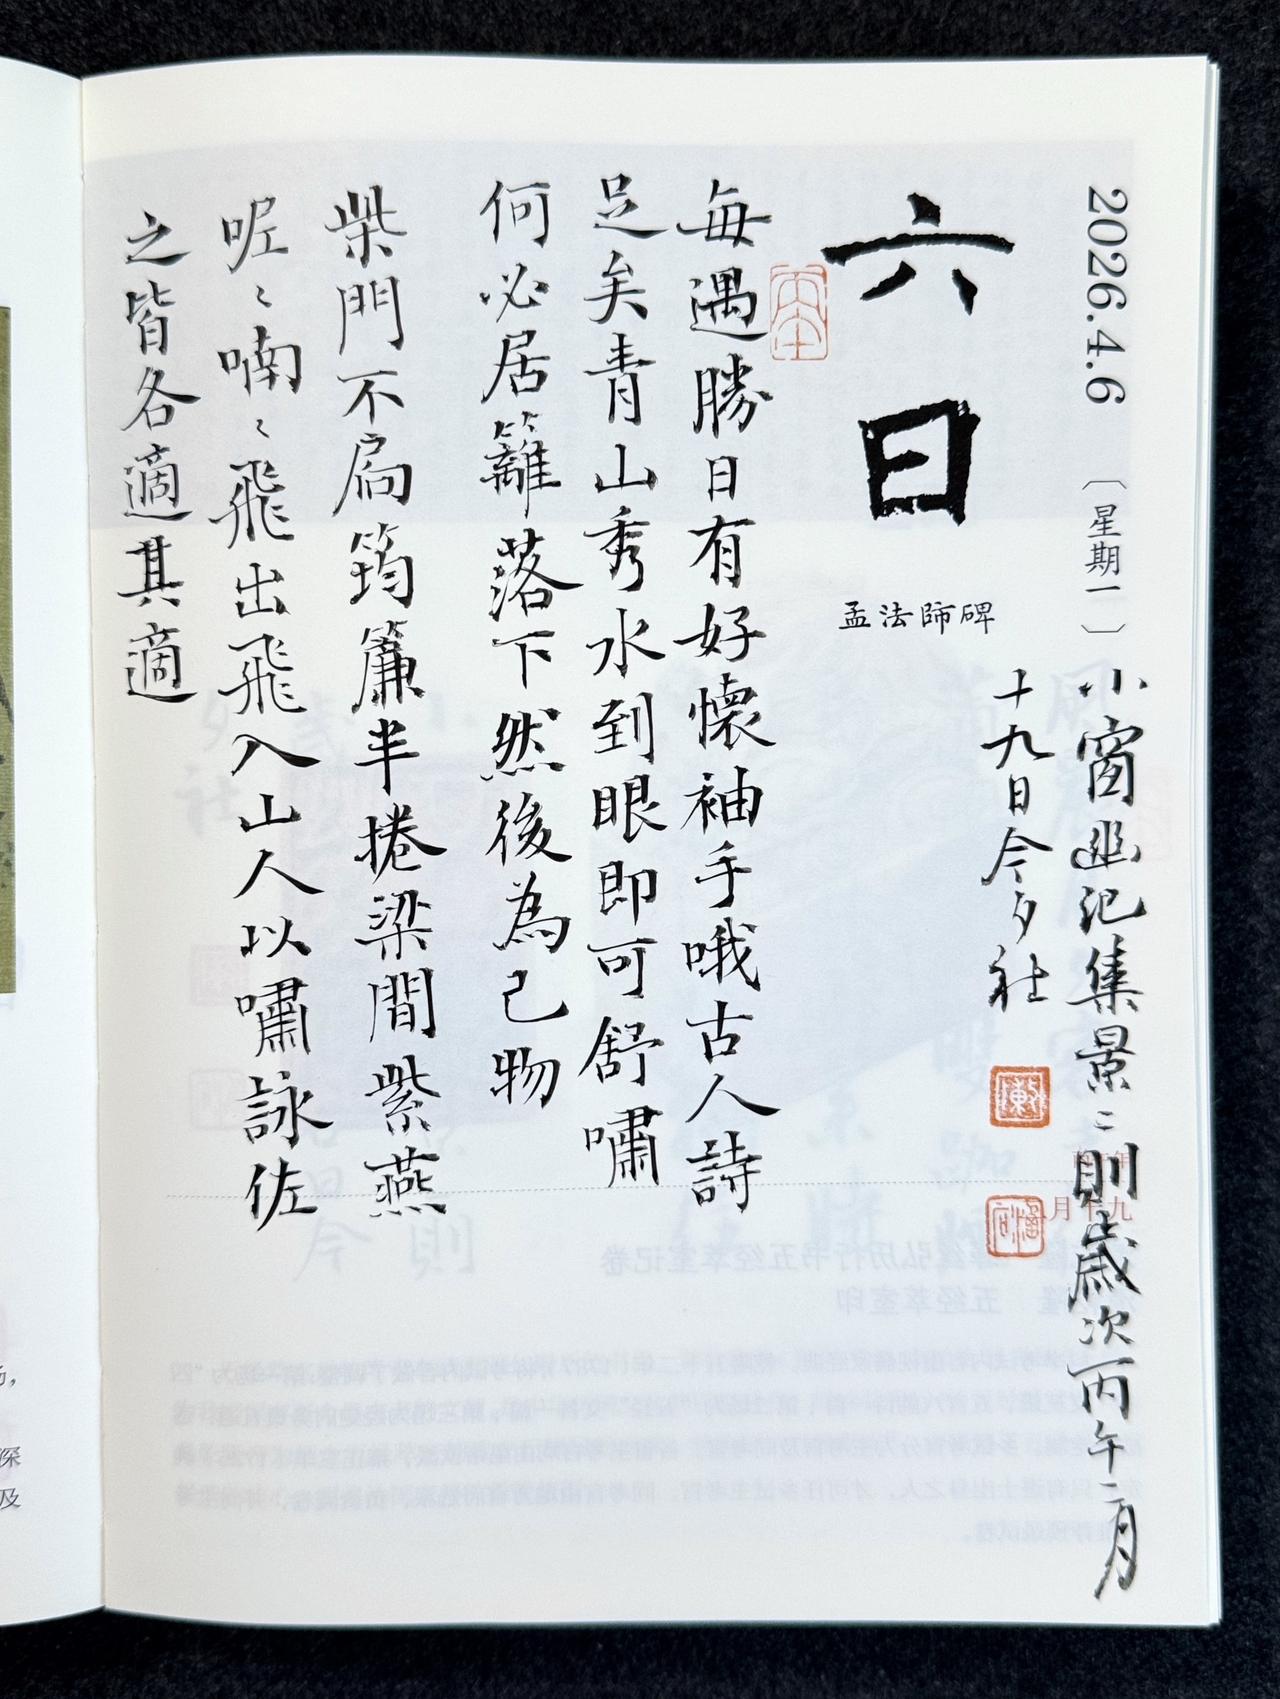 2026.4.6 〔星期一〕
六日
孟法師碑
每遇勝日有好懷袖手哦古人詩
足矣青山秀水到眼即可舒嘯
何必居籬落下然後為己物
柴門不扃筠簾半捲梁間紫燕
呢〻喃〻飛出飛入山人以嘯詠佐
之皆各適其適
小窗幽記集景二則歲次丙午二月
十九日今夕社